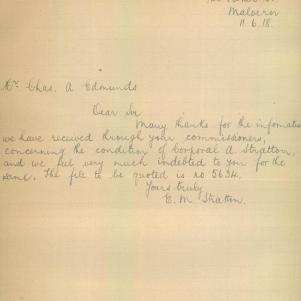 Malvern
11.6.18.
Mr. Chas. A Edmunds
Dear Sir
Many thanks for the information
we have received through your commissioners,
concerning the condition of Corporal A Stratton,
and we feel very much indebted to you for the
same. The file to be quoted is no 5634.
Yours truly
E. M. Stratton.